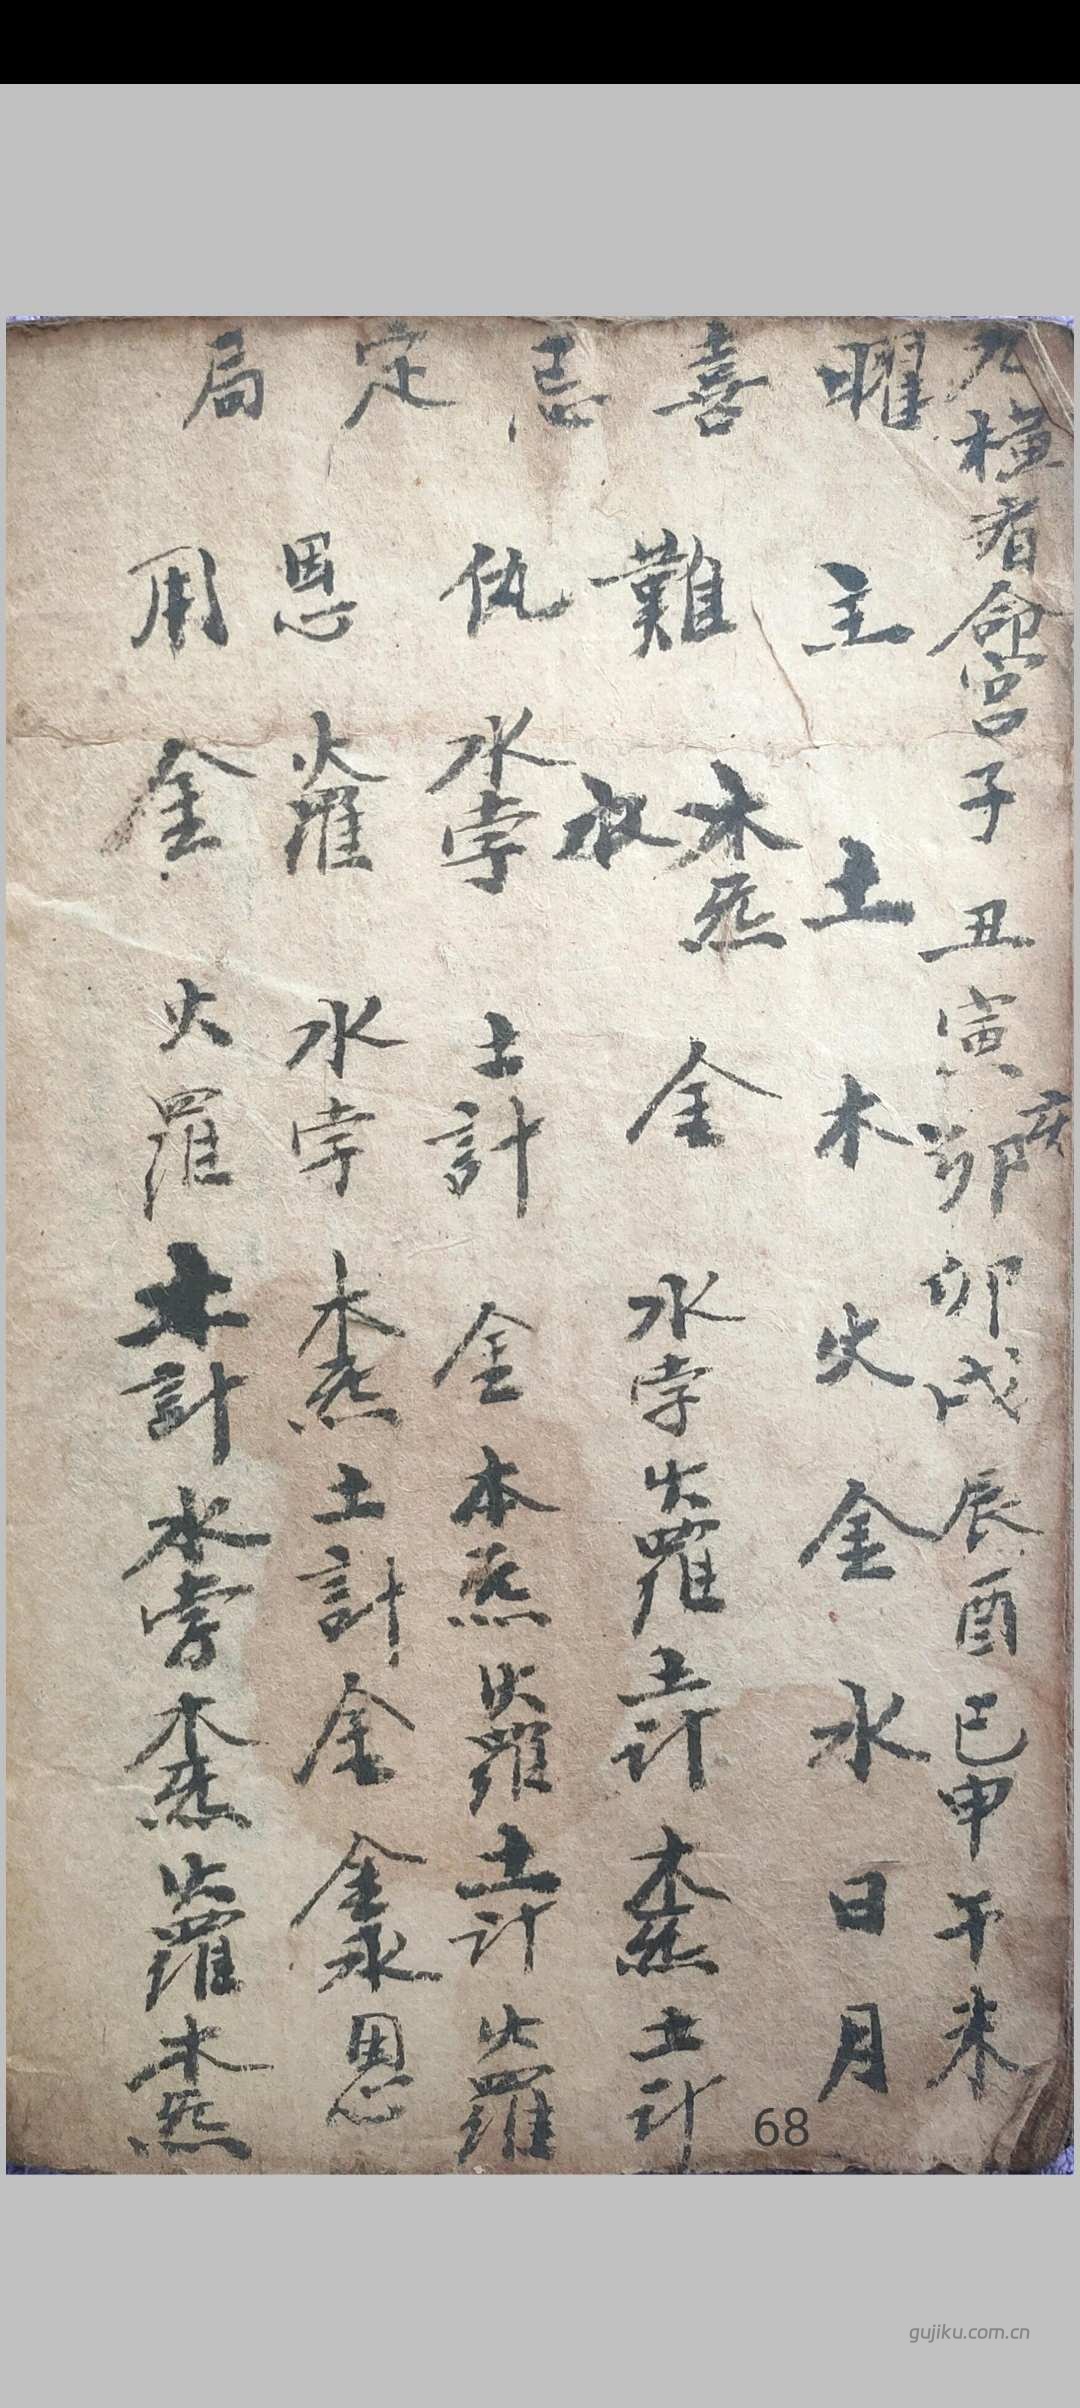 九曜喜忌定局
橫看命宮子丑寅亥卯卯戌辰酉巳申午未
主土木火金水日月
難木炁金水孛火羅土計木炁土計
水
仇水孛土計金木炁火羅土計火羅
恩火羅水孛木炁土計金金水恩
用金火羅土計水孛木炁火羅木炁
68
gujiku.com.cn